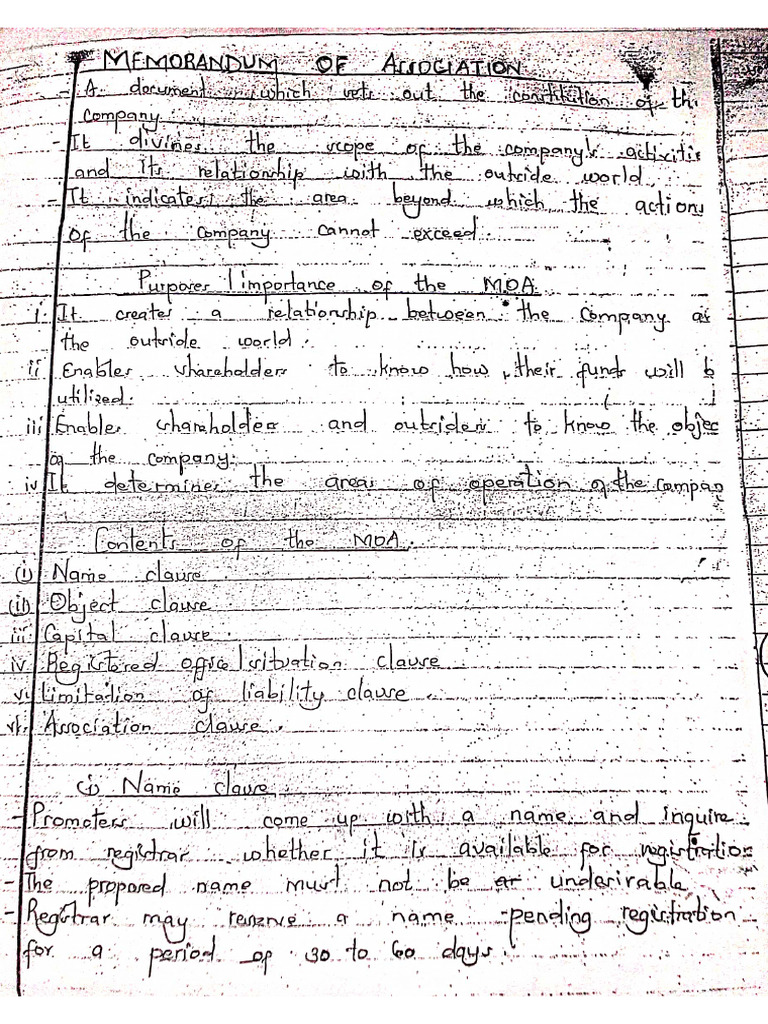 MEMORANDUM OF ASSOCIATION
- A document which sets out the constitution of the
company
- It divines the scope of the company's activitie
and its relationship with the outside world.
- It indicates the area beyond which the actions
of the company cannot exceed.
Purposes/importance of the MOA
i. It creates a relationship between the company as
the outside world.
ii Enables shareholders to know how their funds will b
utilized.
iii Enables shareholders and outsiders to know the objec
of the company.
iv It determines the areas of operation of the compan
Contents of the MOA.
(i) Name clause.
(ii) Object clause
iii Capital clause.
iv Registered office/situation clause
v. Limitation of liability clause.
vi. Association clause.
(i) Name clause
- Promoters will come up with a name and inquire
from registrar whether it is available for registration
- The proposed name must not be undesirable
- Registrar may reserve a name pending registration
for a period of 30 to 60 days.